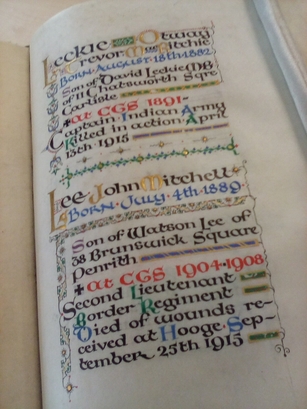 Leckie Otway
Trevor McRitchie
Born August 18th 1882
Son of David Leckie MB
of 11 Chatsworth Sqre
Carlisle
at CGS 1891-
Captain Indian Army
Killed in action April
13th 1915
Lee John Mitchell
Born July 4th 1889
Son of Watson Lee of
38 Brunswick Square
Penrith
at CGS 1904-1908
Second Lieutenant
Border Regiment
Died of wounds re-
ceived at Hooge Sep-
tember 25th 1915